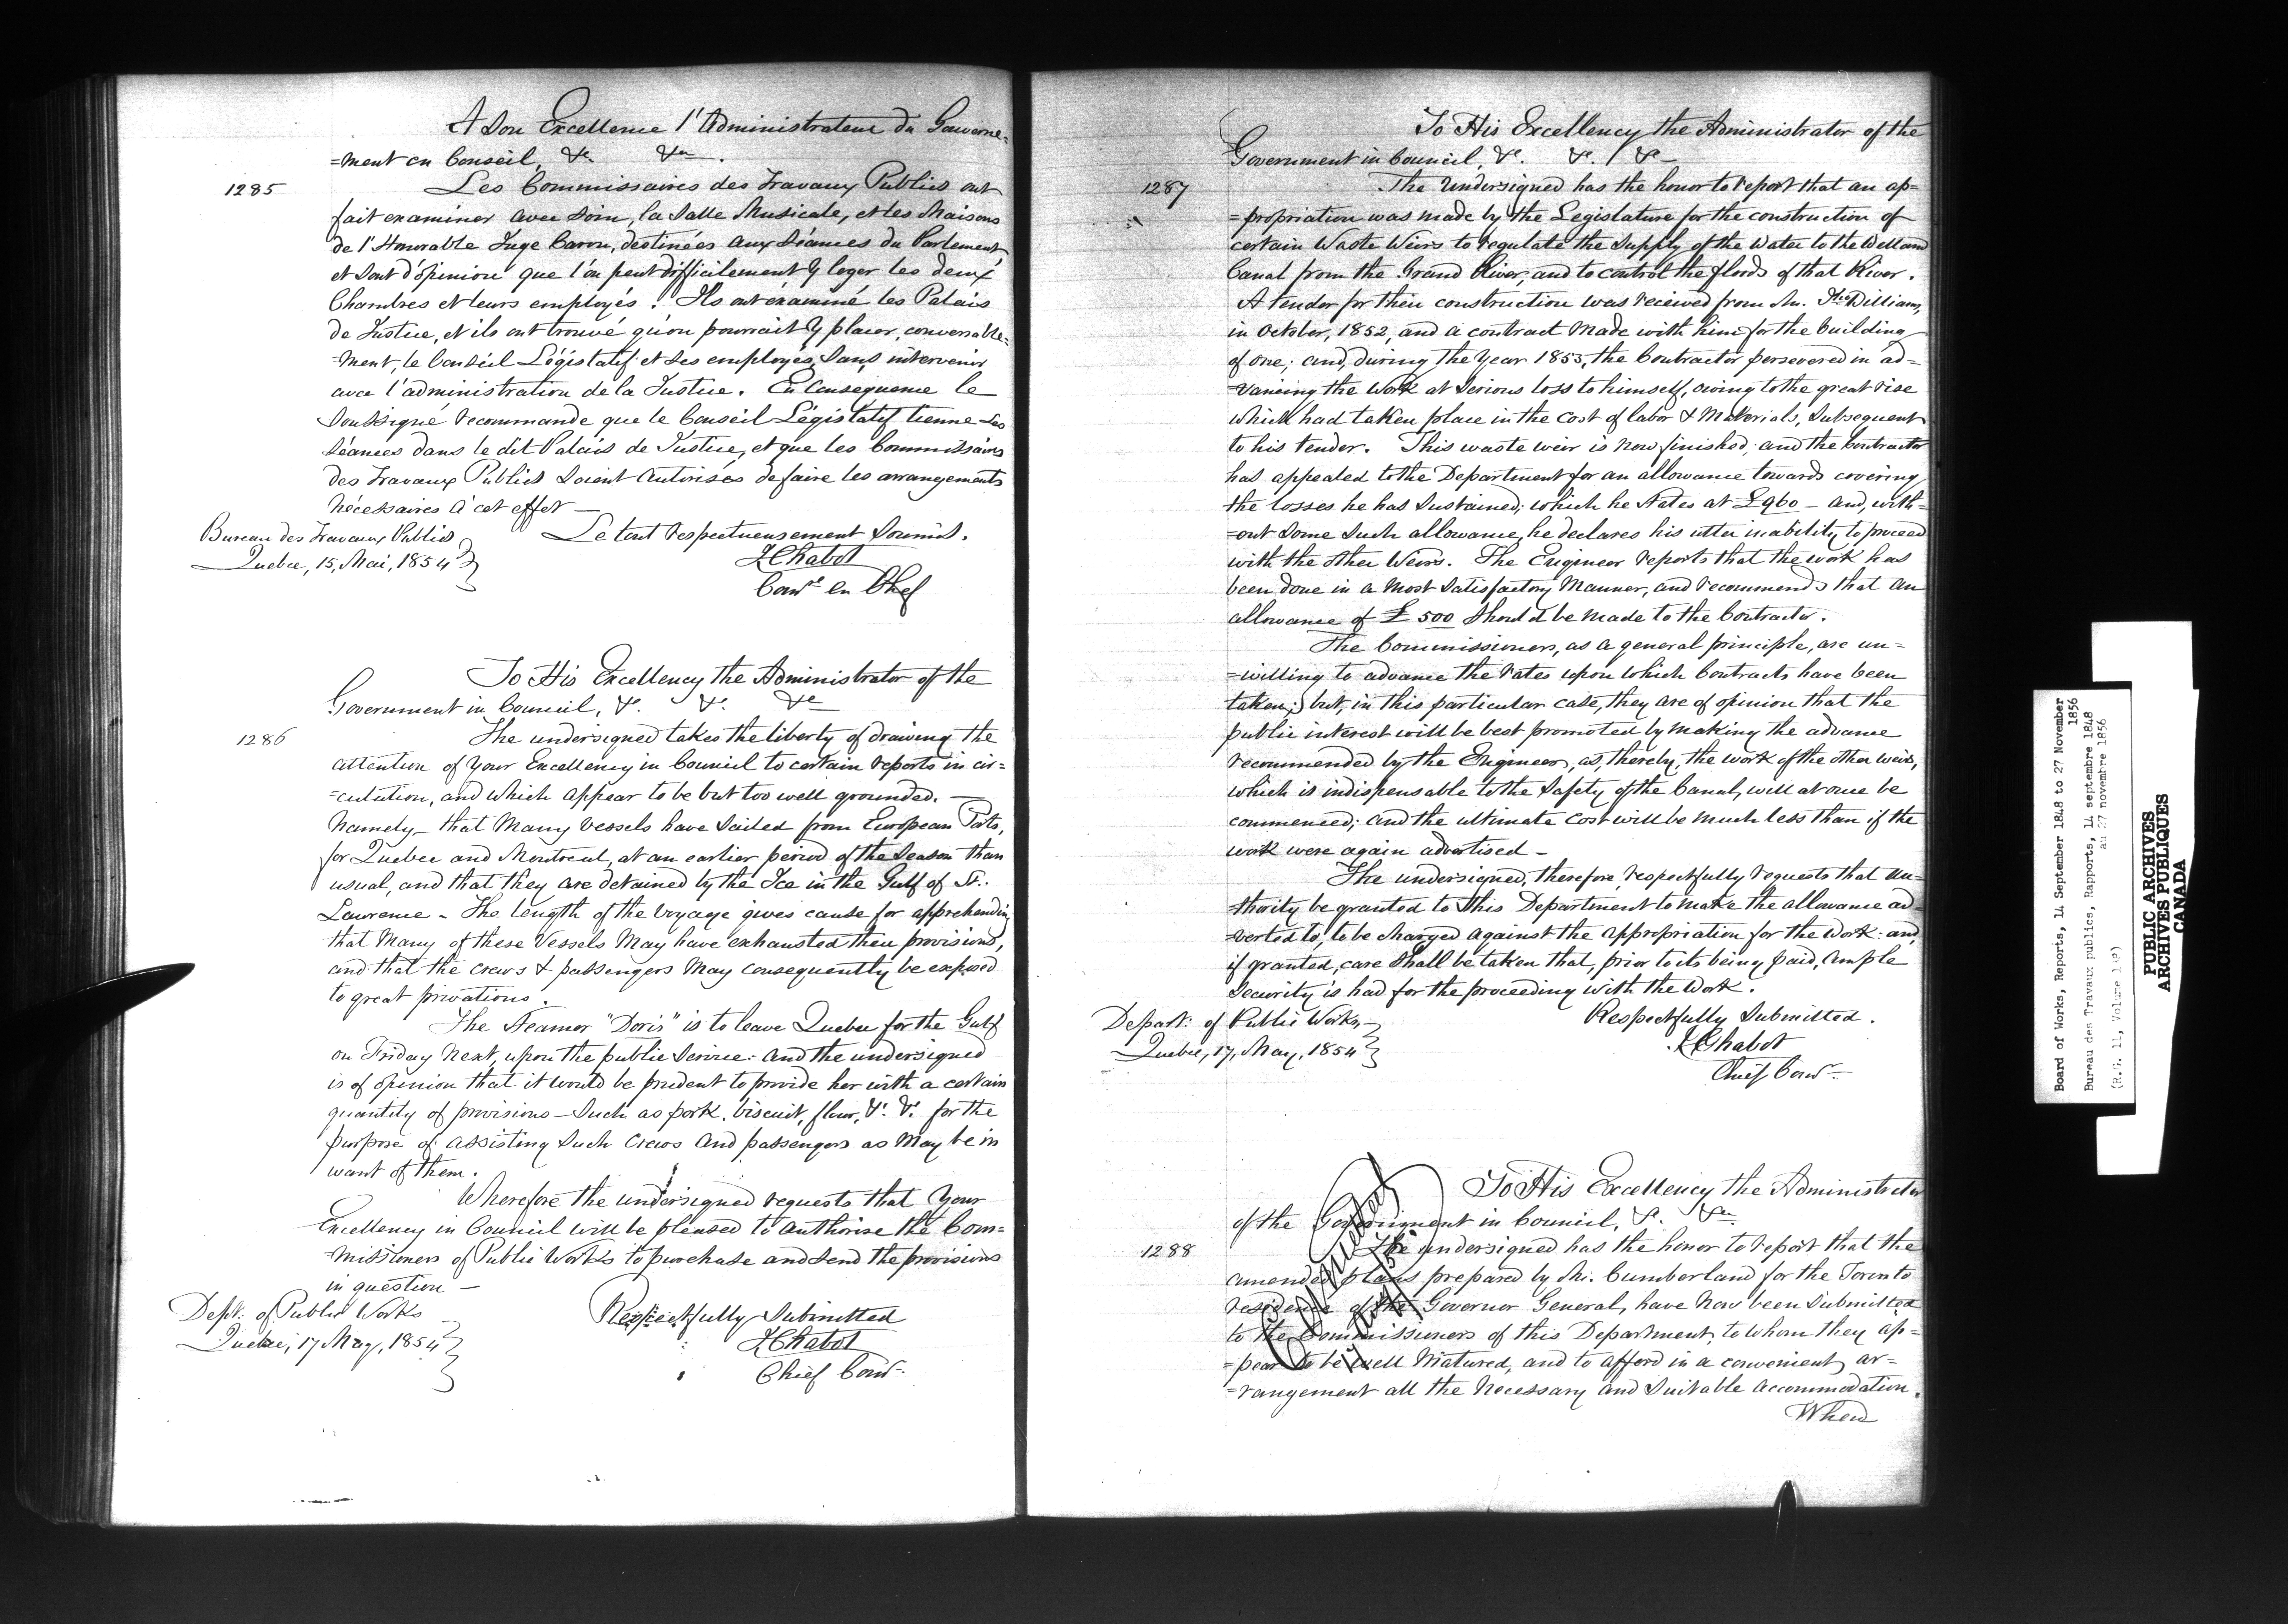 A Son Excellence l'Administrateur du Gouverne=
=ment en Conseil, &c. &ca.
1285
Les Commissaires des Travaux Publics ont
fait examiner avec soin, la Salle Musicale, et les Maisons
de l'Honorable Juge Caron, destinées aux Séances du Parlement,
et sont d'opinion que l'on peut difficilement y loger les deux
Chambres et leurs employés. Ils ont examiné les Palais
de Justice, et ils ont trouvé qu'on pourrait y placer, convenable=
=ment, le Conseil Législatif et ses employés, sans intervenir
avec l'administration de la Justice. En Consequence le
Soussigné recommande que le Conseil Législatif tienne ses
Séances dans le dit Palais de Justice, et que les Commissaires
des Travaux Publics soient autorisés de faire les arrangements
nécessaires à cet effet —
Le tout respectueusement Soumis.
Bureau des Travaux Publics
Quebec, 15, Mai, 1854
J Chabot
Comre en Chef
To His Excellency the Administrator of the
Government in Council, &c. &c. &c
1286
The undersigned takes the liberty of drawing the
attention of Your Excellency in Council to certain reports in cir=
=culation, and which appear to be but too well grounded. —
Namely — that many vessels have sailed from European Ports,
for Quebec and Montreal, at an earlier period of the Season than
usual, and that they are detained by the Ice in the Gulf of St.
Lawrence – The length of the voyage gives cause for apprehending
that many of these Vessels may have exhausted their provisions,
and that the crews & passengers may consequently be exposed
to great privations.
The Steamer "Doris" is to leave Quebec for the Gulf
on Friday next, upon the public Service: and the undersigned
is of opinion that it would be prudent to provide her with a certain
quantity of provisions — such as pork, biscuit, flour, &c. &c. for the
purpose of assisting such crews and passengers as may be in
want of them.
Wherefore the undersigned requests that Your
Excellency in Council will be pleased to authorise the Com=
=missioners of Public Works to purchase and send the provisions
in question —
Dept. of Public Works
Quebec, 17 May, 1854
Respectfully Submitted
J Chabot
Chief Comr.
To His Excellency the Administrator of the
Government in Council, &c. &c. &c —
1287
The Undersigned has the honor to report that an ap=
=propriation was made by the Legislature for the construction of
certain Waste Weirs to regulate the Supply of the Water to the Welland
Canal from the Grand River, and to control the floods of that River.
A tender for their construction was received from Mr. Williams,
in October, 1852, and a contract made with him for the building
of one; and, during the year 1853, the Contractor persevered in ad=
=vancing the work at serious loss to himself, owing to the great rise
which had taken place in the cost of labor & Materials, subsequent
to his tender. This waste weir is now finished; and the Contractor
has appealed to the Department for an allowance towards covering
the losses he has sustained; which he states at £960 — and, with=
=out some such allowance, he declares his utter inability to proceed
with the other Weirs. The Engineer reports that the work has
been done in a most satisfactory manner, and recommends that an
allowance of £500 should be made to the Contractor.
The Commissioners, as a general principle, are un=
=willing to advance the rates upon which Contracts have been
taken; but, in this particular case, they are of opinion that the
public interest will be best promoted by making the advance
recommended by the Engineer, as, thereby, the work of the other weirs,
which is indispensable to the safety of the Canal, will at once be
commenced; and the ultimate cost will be much less than if the
work were again advertised —
The undersigned, therefore, respectfully requests that au=
=thority be granted to this Department to make the allowance ad=
=verted to, to be charged against the appropriation for the Work: and,
if granted, care shall be taken that, prior to its being paid, ample
Security is had for the proceeding with the Work.
Respectfully Submitted.
Depart: of Public Works,
Quebec, 17, May, 1854
J Chabot
Chief Comr.
To His Excellency the Administrator
of the Government in Council, &c. &ca.
1288
The undersigned has the honor to report that the
amended plans prepared by Mr. Cumberland for the Toronto
residence of the Governor General, have now been submitted
to the Commissioners of this Department, to whom they ap=
=pear to be well matured, and to afford in a convenient ar=
=rangement all the necessary and suitable accommodation.
When
Board of Works, Reports, 14 September 1848 to 27 November
1856
Bureau des Travaux publics, Rapports, 14 septembre 1848
au 27 novembre 1856
(R.G. 11, Volume
PUBLIC ARCHIVES
ARCHIVES PUBLIQUES
CANADA